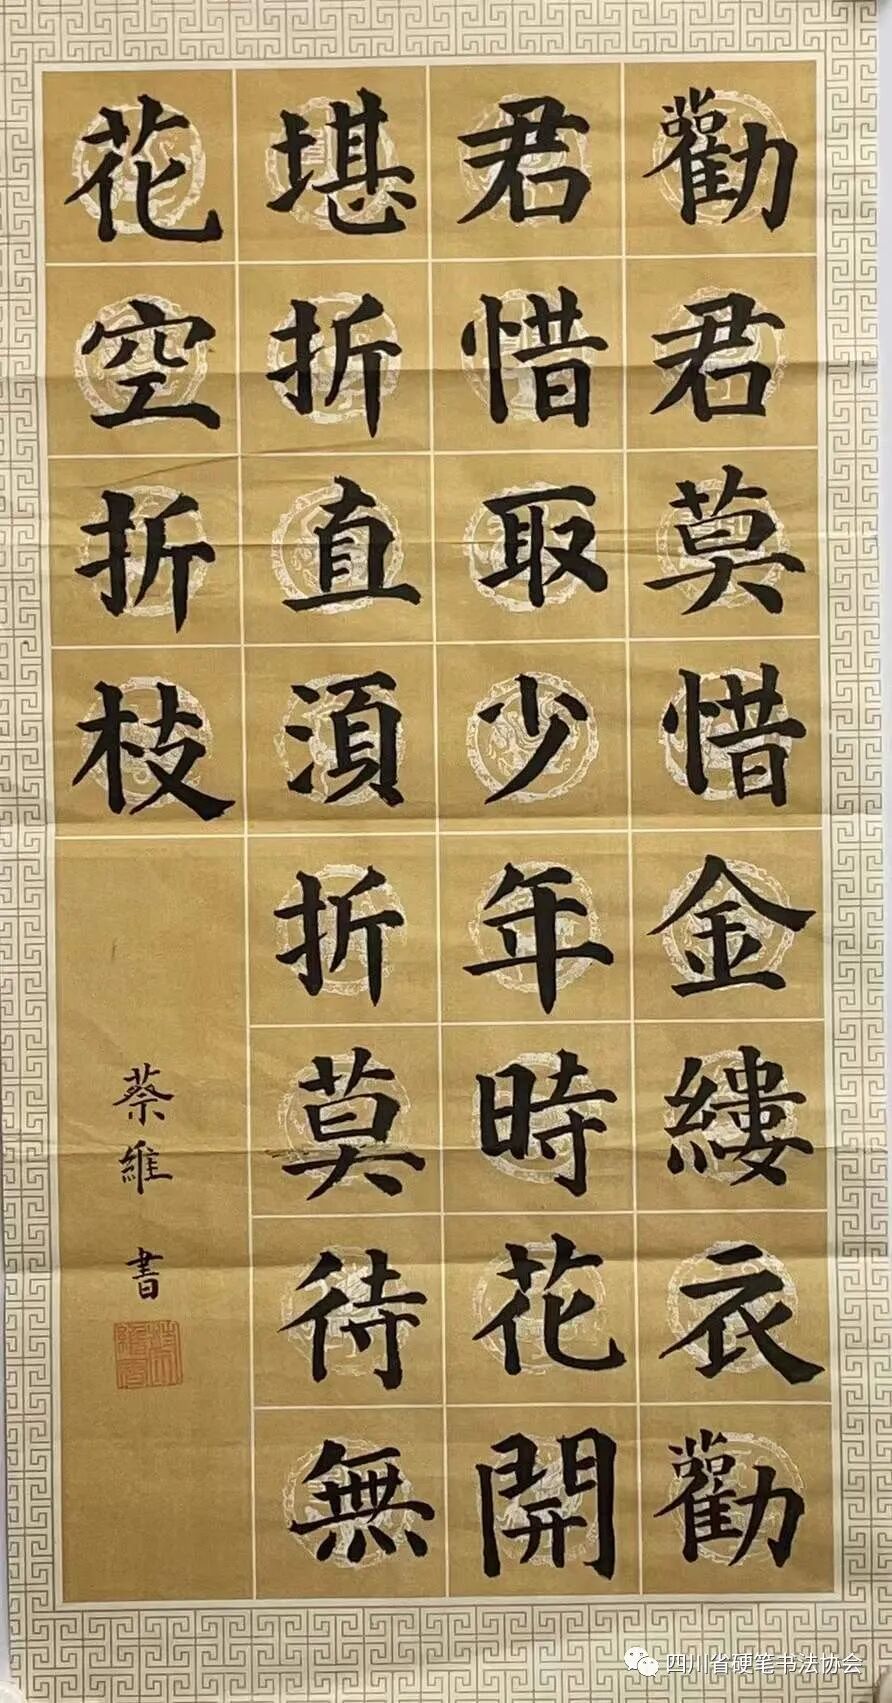 勸君莫惜金縷衣勸
君惜取少年時花開
堪折直須折莫待無
花空折枝
蔡維書
四川省硬笔书法协会